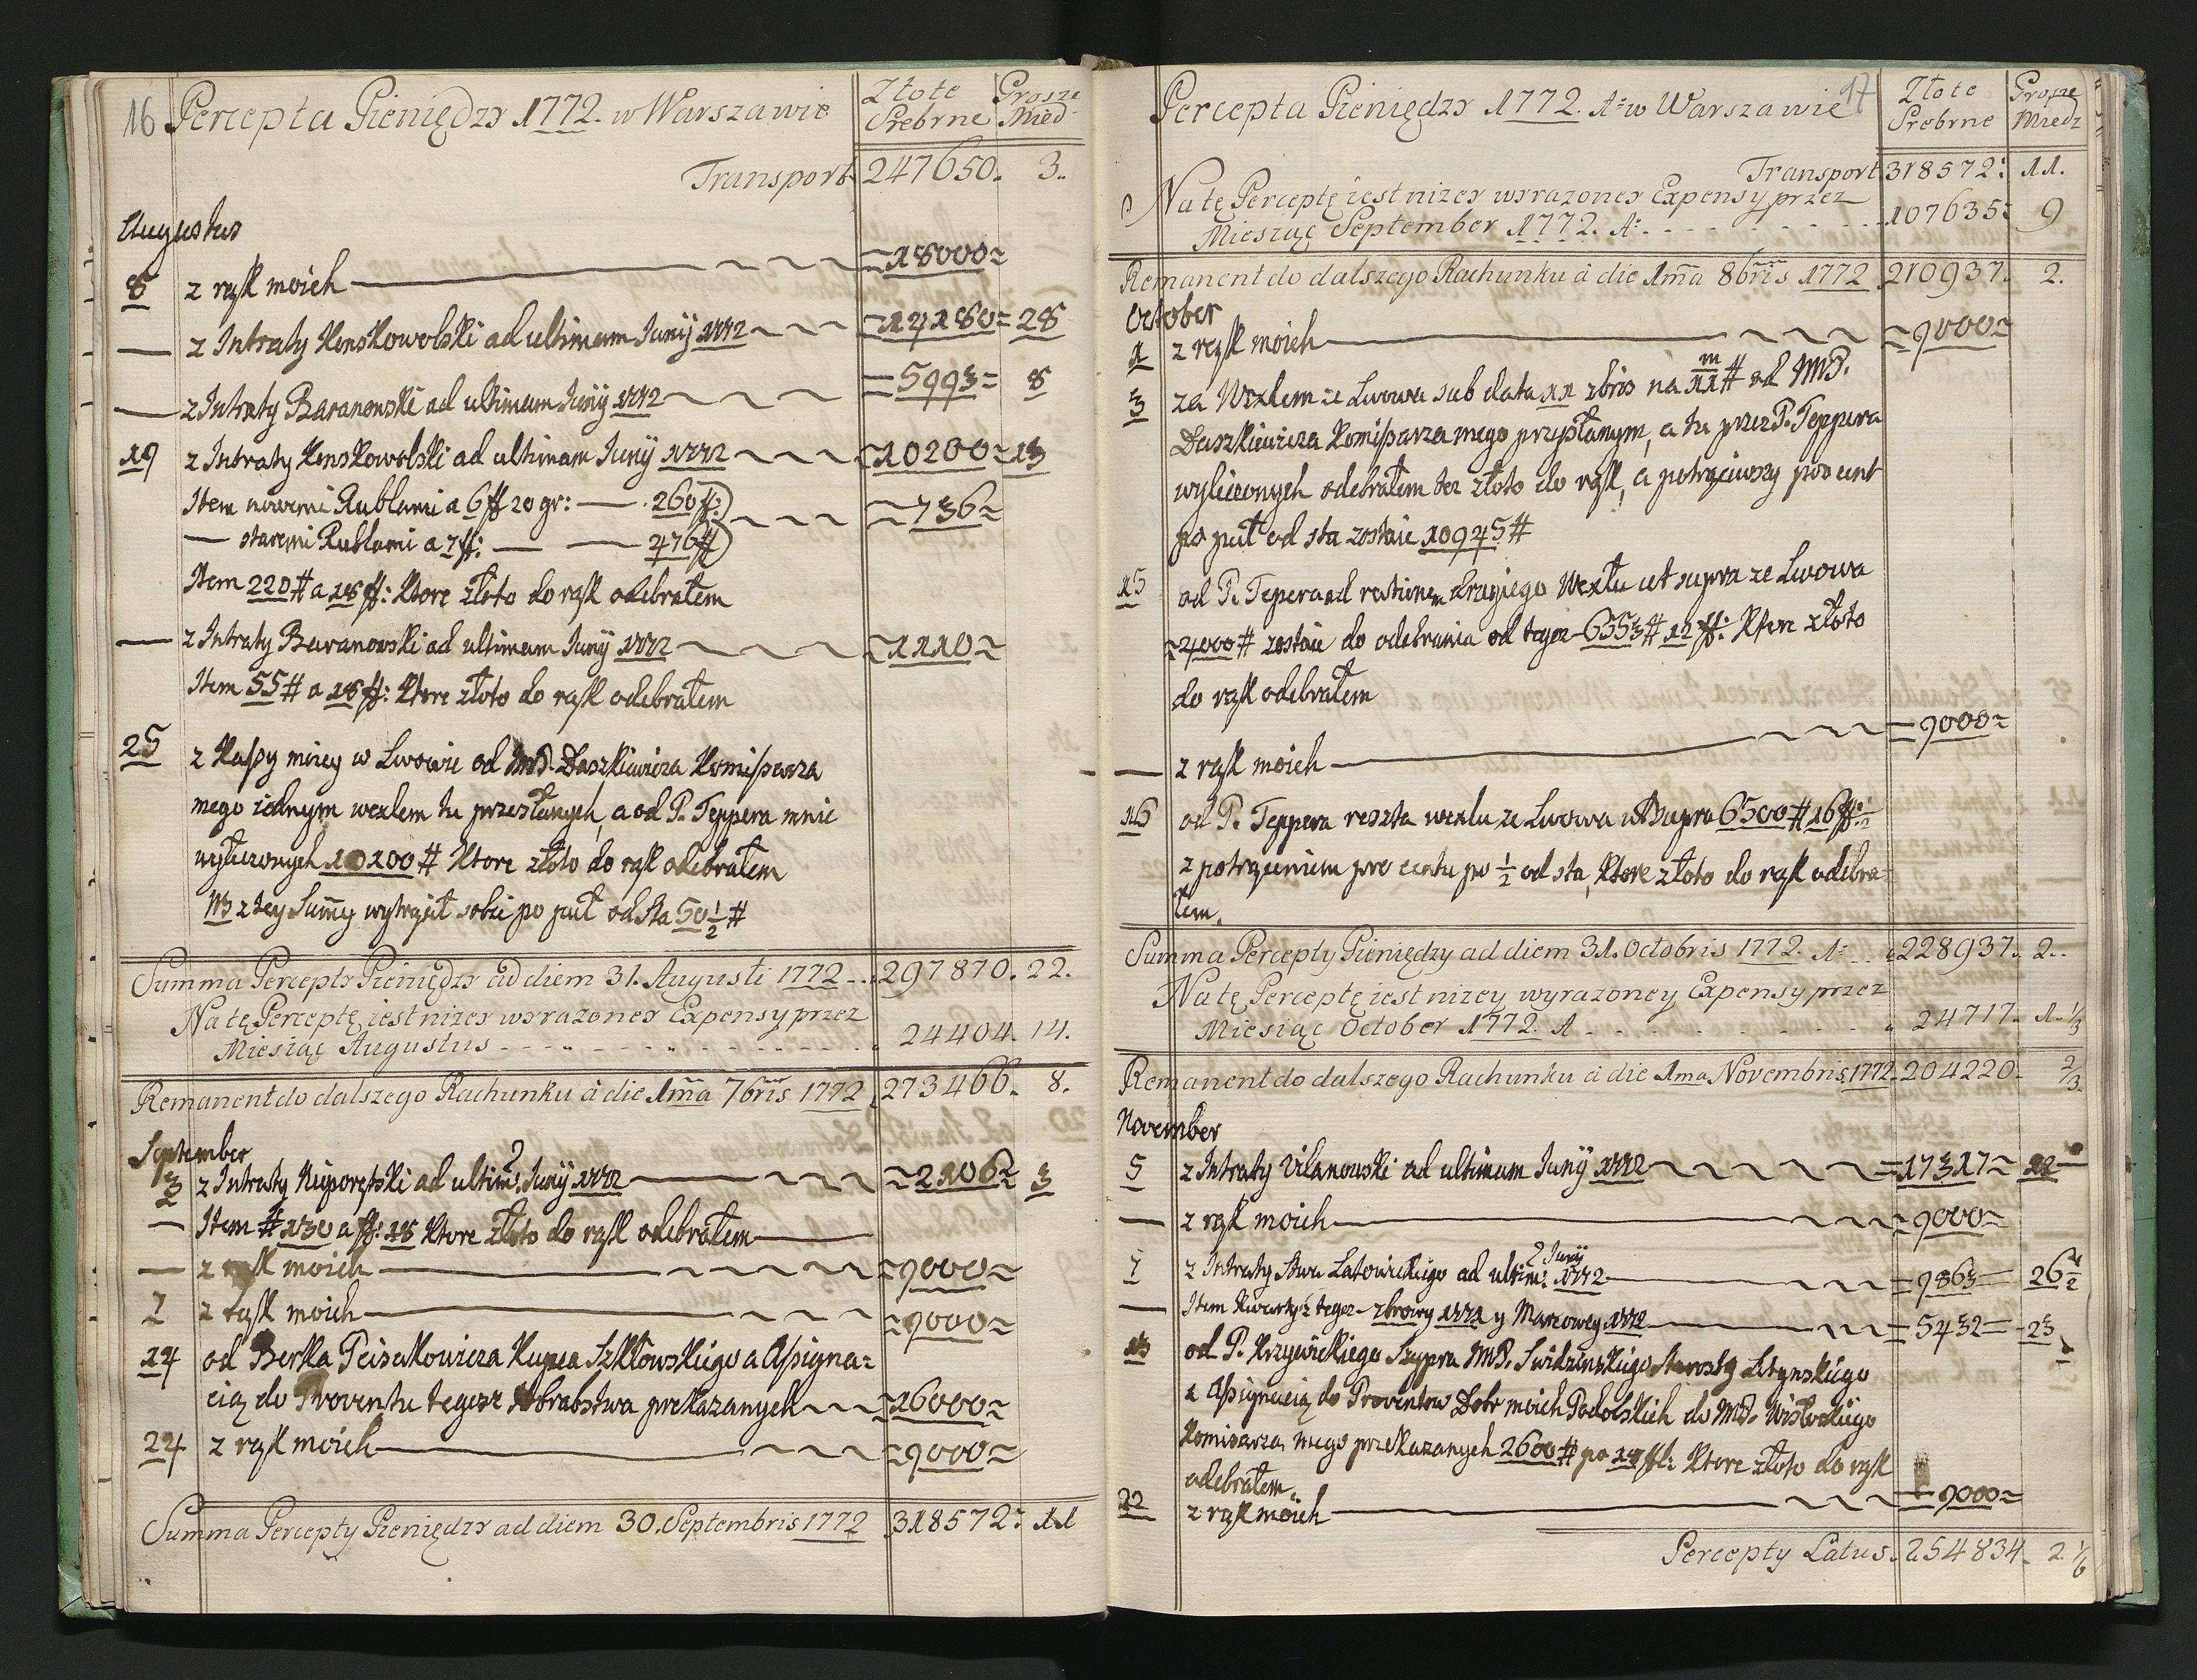 16 Percepta Pieniędzy 1772. w Warszawie
Złote Srebrne
Grosze Mied
Transport 247650. 3.
Augustus
8 z rąk moich 18000
— z Intraty Konskowolski ad ultimam Junij 1772 14180 28
— z Intraty Baranowski ad ultimam Junij 1772 5993 8
19 z Intraty Konskowolski ad ultimam Junij 1772 10200 13
Item nowemi Rublami a 6 ff 20 gr: — 260 ff:
— staremi Rublami a 7 ff: — 476 ff 736
Item 220 # a 18 ff: Ktore złoto do rąk odebrałem
— z Intraty Baranowski ad ultimam Junij 1772 1110
Item 55 # a 18 ff: Ktore złoto do rąk odebrałem
25 z Kassy moiey w Lwowie od JmP. Daszkiewicza Komissarza
mego iednym wexlem tu przesłanych, a od P. Teppera mnie
wyliczonych 10100 # Ktore złoto do rąk odebrałem
NB z tey Sumy wytrącił sobie po puł od sta 50 1/2 #
Summa Percepty Pieniędzy ad diem 31. Augusti 1772 297870. 22.
Na tę Perceptę iest nizey wyrazoney Expensy przez
Miesiąc Augustus 24404. 14.
Remanent do dalszego Rachunku à die 1ma 7bris 1772 273466. 8.
September
3 z Intraty Nieporętski ad ultim: Junij 1772 2106 3
— Item # 130 a ff: 18 Ktore złoto do rąk odebrałem
— z rąk moich 9000
7 z rąk moich 9000
14 od Berka Peisakowicza Kupca Szkłowskiego a Assigna=
cią do Proventu tegoz Hrabstwa prekazanych 16000
24 z rąk moich 9000
Summa Percepty Pieniędzy ad diem 30. Septembris 1772 318572: 11
Percepta Pieniędzy 1772. A: w Warszawie 17
Złote Srebrne
Grosze Miedz
Transport 318572: 11.
Na tę Perceptę iest nizey wyrazoney Expensy przez
Miesiąc September 1772. A: 107635: 9
Remanent do dalszego Rachunku à die 1ma 8bris 1772 210937. 2.
October
1 z rąk moich 9000
3 za Wexlem ze Lwowa sub data 11 zbris na 11 m # od JmP.
Daszkiewicza Komissarza mego przysłanym, a tu przez P. Teppera
wyliczonych odebrałem tez złoto do rąk, a potrąciwszy procent
po puł od sta zostaie 10945 #
15 od P. Tepera ad rationem drugiego Wexlu ut supra ze Lwowa
4000 # zostaie do odebrania od tegoz 6553 # 12 ff: Ktore złoto
do rąk odebrałem
— z rąk moich 9000
16 od P. Teppera reszta wexlu ze Lwowa ut supra 6500 # 16 ff: 1/2
z potrąceniem pro centu po 1/2 od sta, Ktore złoto do rąk odebra
łem.
Summa Percepty Pieniędzy ad diem 31. Octobris 1772. A: 228937. 2.
Na tę Perceptę iest nizey wyrazoney Expensy przez
Miesiąc October 1772. A 24717. 1. 1/3
Remanent do dalszego Rachunku à die 1ma Novembris 1772. 204220. 2/3
November
5 z Intraty Vilanowski ad ultimam Junij 1772 17317 12
— z rąk moich 9000
7 z Intraty Stwa Latowickiego ad ultim: Junij 1772 9863 26 1/2
— Item Kwarty z tegoz zbrowy 1771 y Marcowey 1772 5432 23
13 od P. Krzywickiego Szypra JmP. Swidzinskiego Starosty Lityńskiego
a Assignacią do Proventow Dobr moich Podolskich do JmP.
Komisarza mego przekazanych 2600 # po 18 ff: Ktore złoto do rąk
odebrałem.
22 z rąk moich 9000
Percepty Latus. 254834. 2 1/6